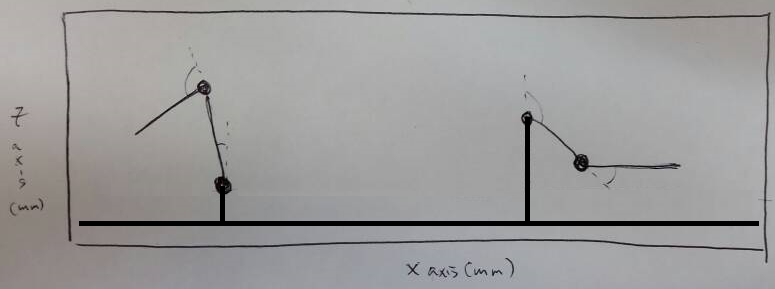 z axis (mm)
x axis (mm)